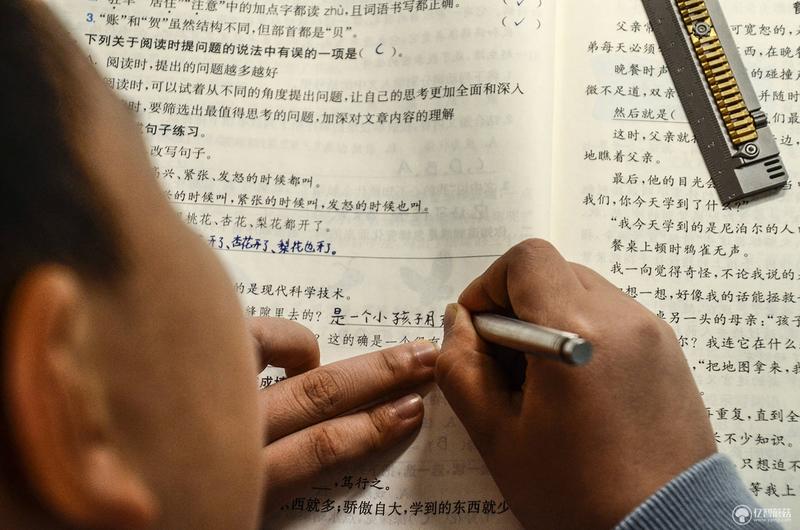 “注意”中的加点字都读zhù,且词语书写都正确。
3.“账”和“贺”虽然结构不同,但部首都是“贝”。
(✓)
(✓)
下列关于阅读时提问题的说法中有误的一项是( C )。
阅读时,提出的问题越多越好
阅读时,可以试着从不同的角度提出问题,让自己的思考更加全面和深入
时,要筛选出最值得思考的问题,加深对文章内容的理解
句子练习。
改写句子。
高兴、紧张、发怒的时候都叫。
的时候叫,紧张的时候叫,发怒的时候也叫。
桃花、杏花、梨花都开了。
开了、杏花开了、梨花也开了。
的是现代科学技术。
缝隙里去的?是一个小孩子用
?这的确是一个
,笃行之。
就多;骄傲自大,学到的东西就少
父亲常
可宽恕的,
弟每天必须
西,在晚餐
晚餐时声
的碰撞
微不足道,双亲
并随时
然后就是(
们最
这时,父亲就
边,
地瞧着父亲。
最后,他的目光会
我们,你今天学到了什么?”
“我今天学到的是尼泊尔的人
餐桌上顿时鸦雀无声。
我一向觉得奇怪,不论我说的
想一想,好像我的话能拯救
桌另一头的母亲:“孩子
尔?我连它在什么
“把地图拿来,我
再重复,直到全
长不少知识。
只想迫不
等我上
亿智蘑菇